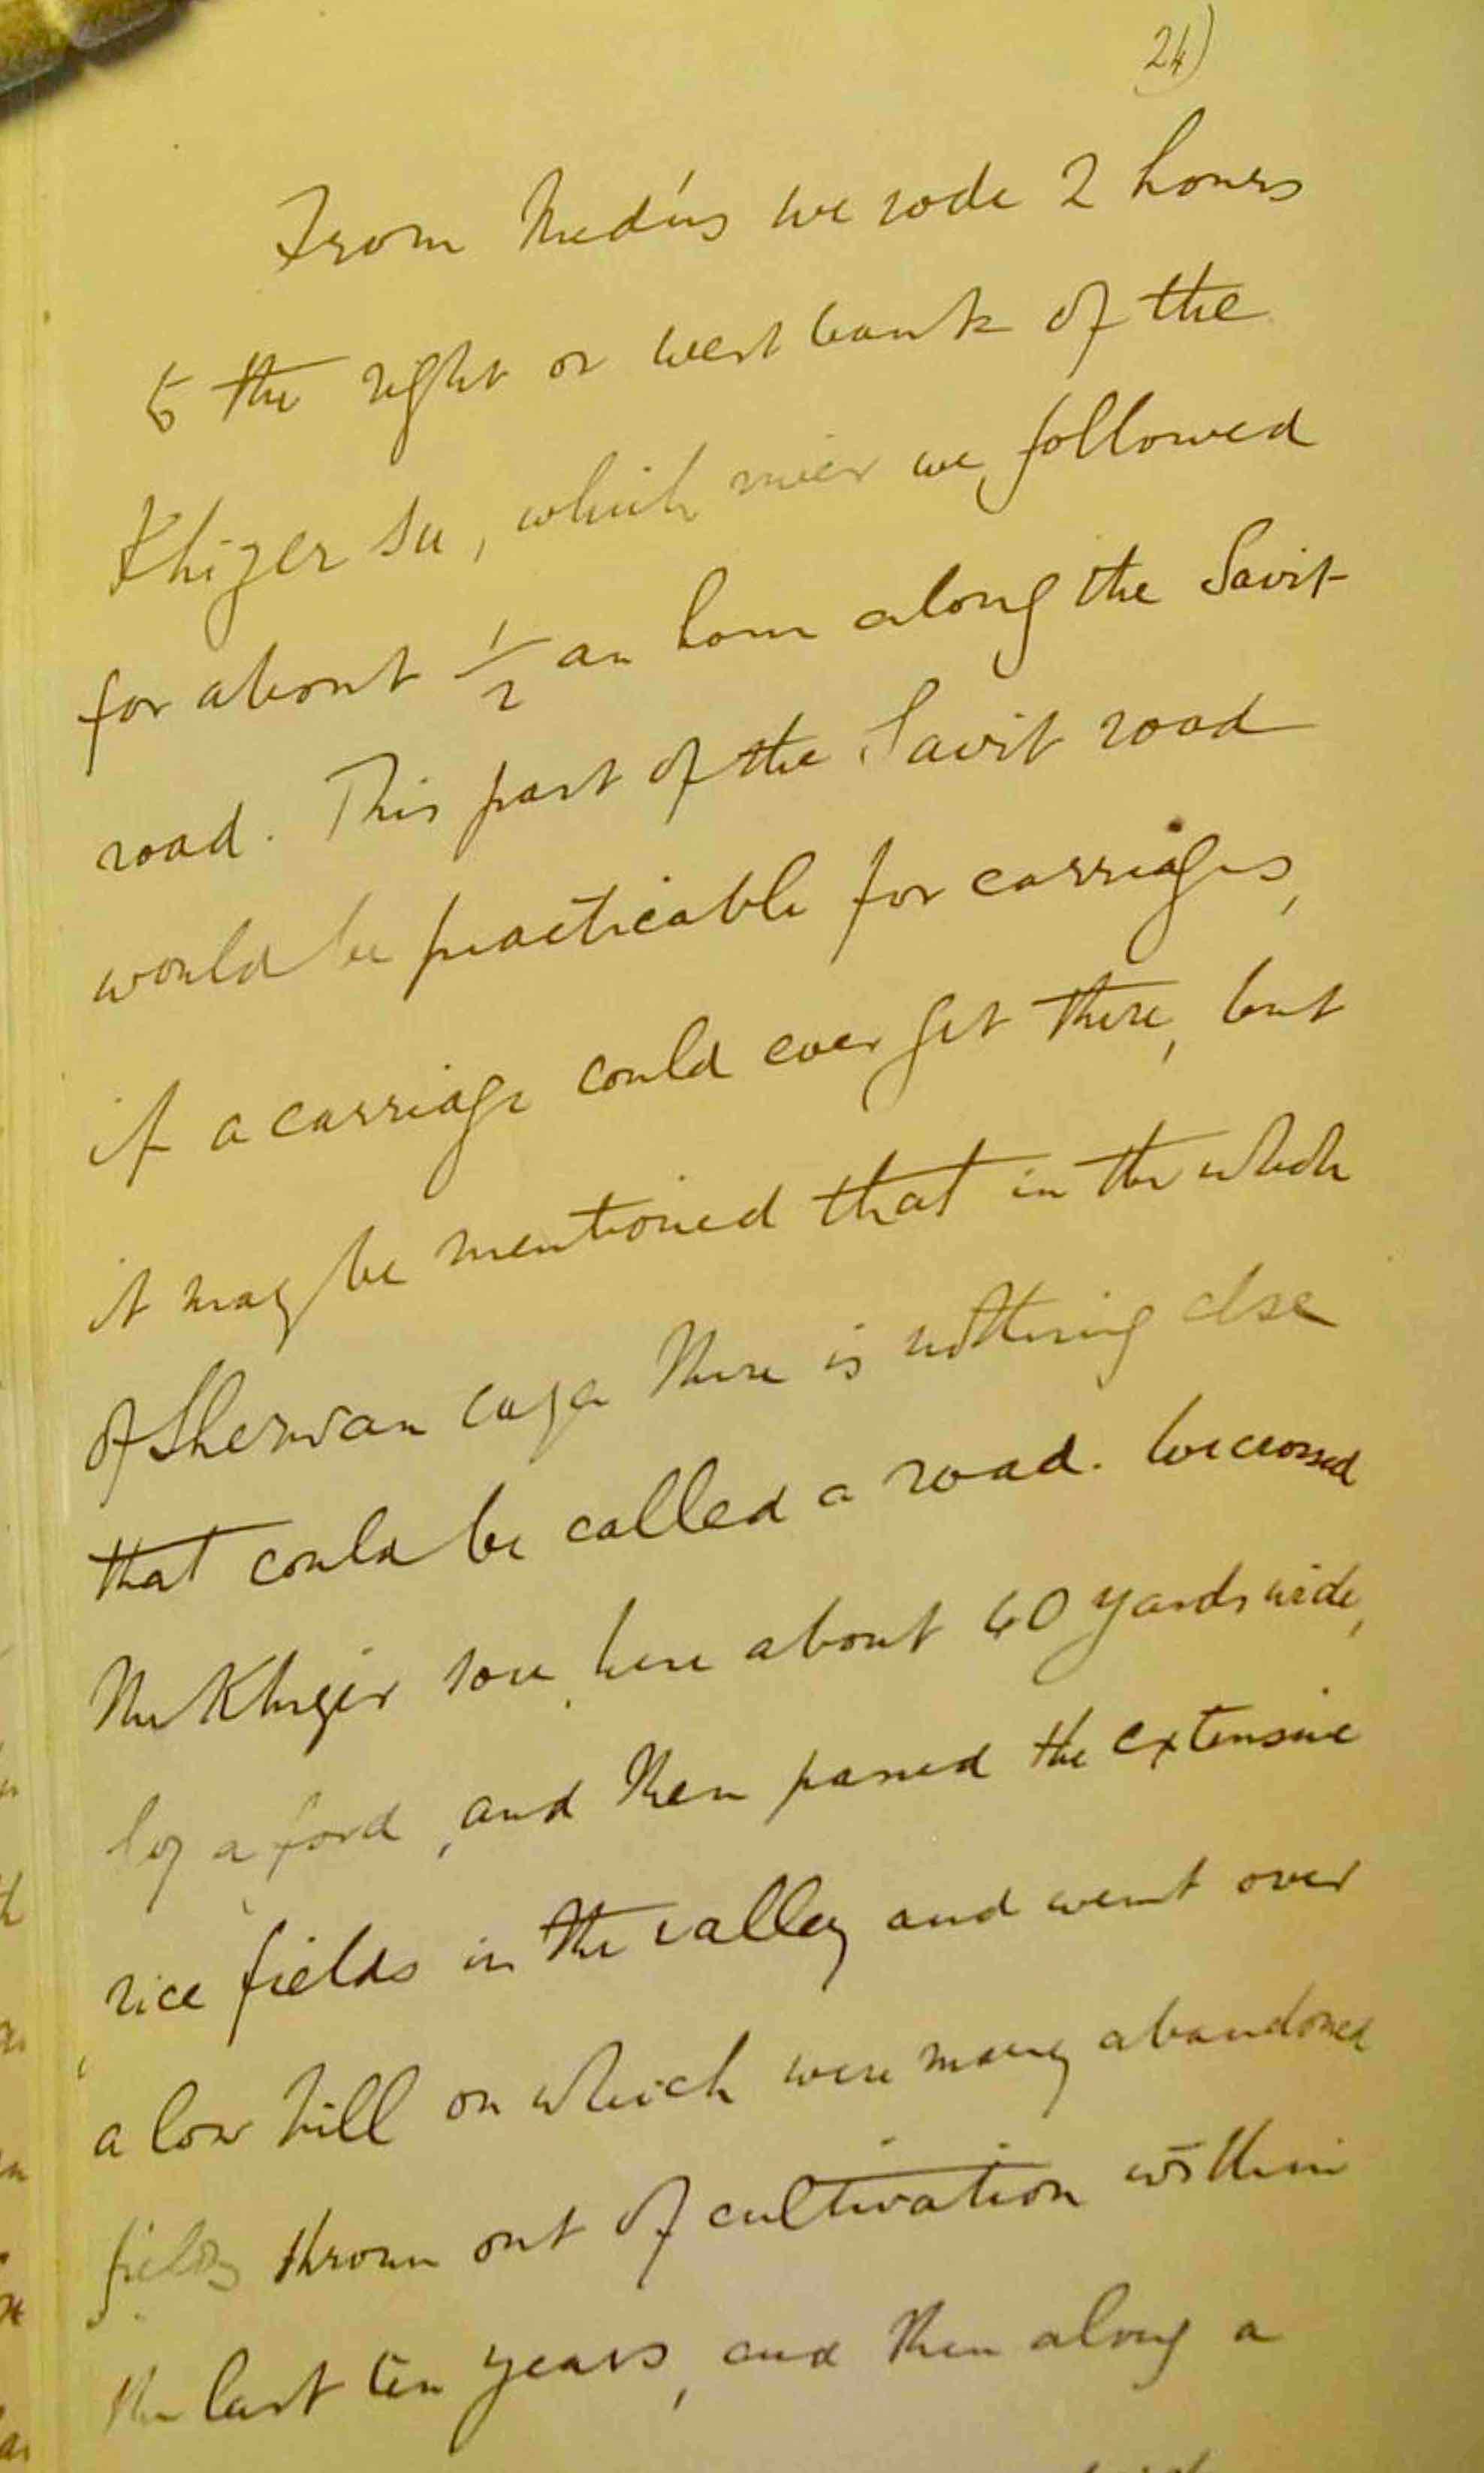 24)
From Medús we rode 2 hours
to the right or west bank of the
Khizer su, which river we followed
for about ½ an hour along the Savit
road. This part of the Savit road
would be practicable for carriages,
if a carriage could ever get there, but
it may be mentioned that in the whole
of Shervan caza there is nothing else
that could be called a road. We crossed
the Khizer sou, here about 40 yards wide,
by a ford, and then passed the extensive
rice fields in the valley and went over
a low hill on which were many abandoned
fields thrown out of cultivation within
the last ten years, and then along a